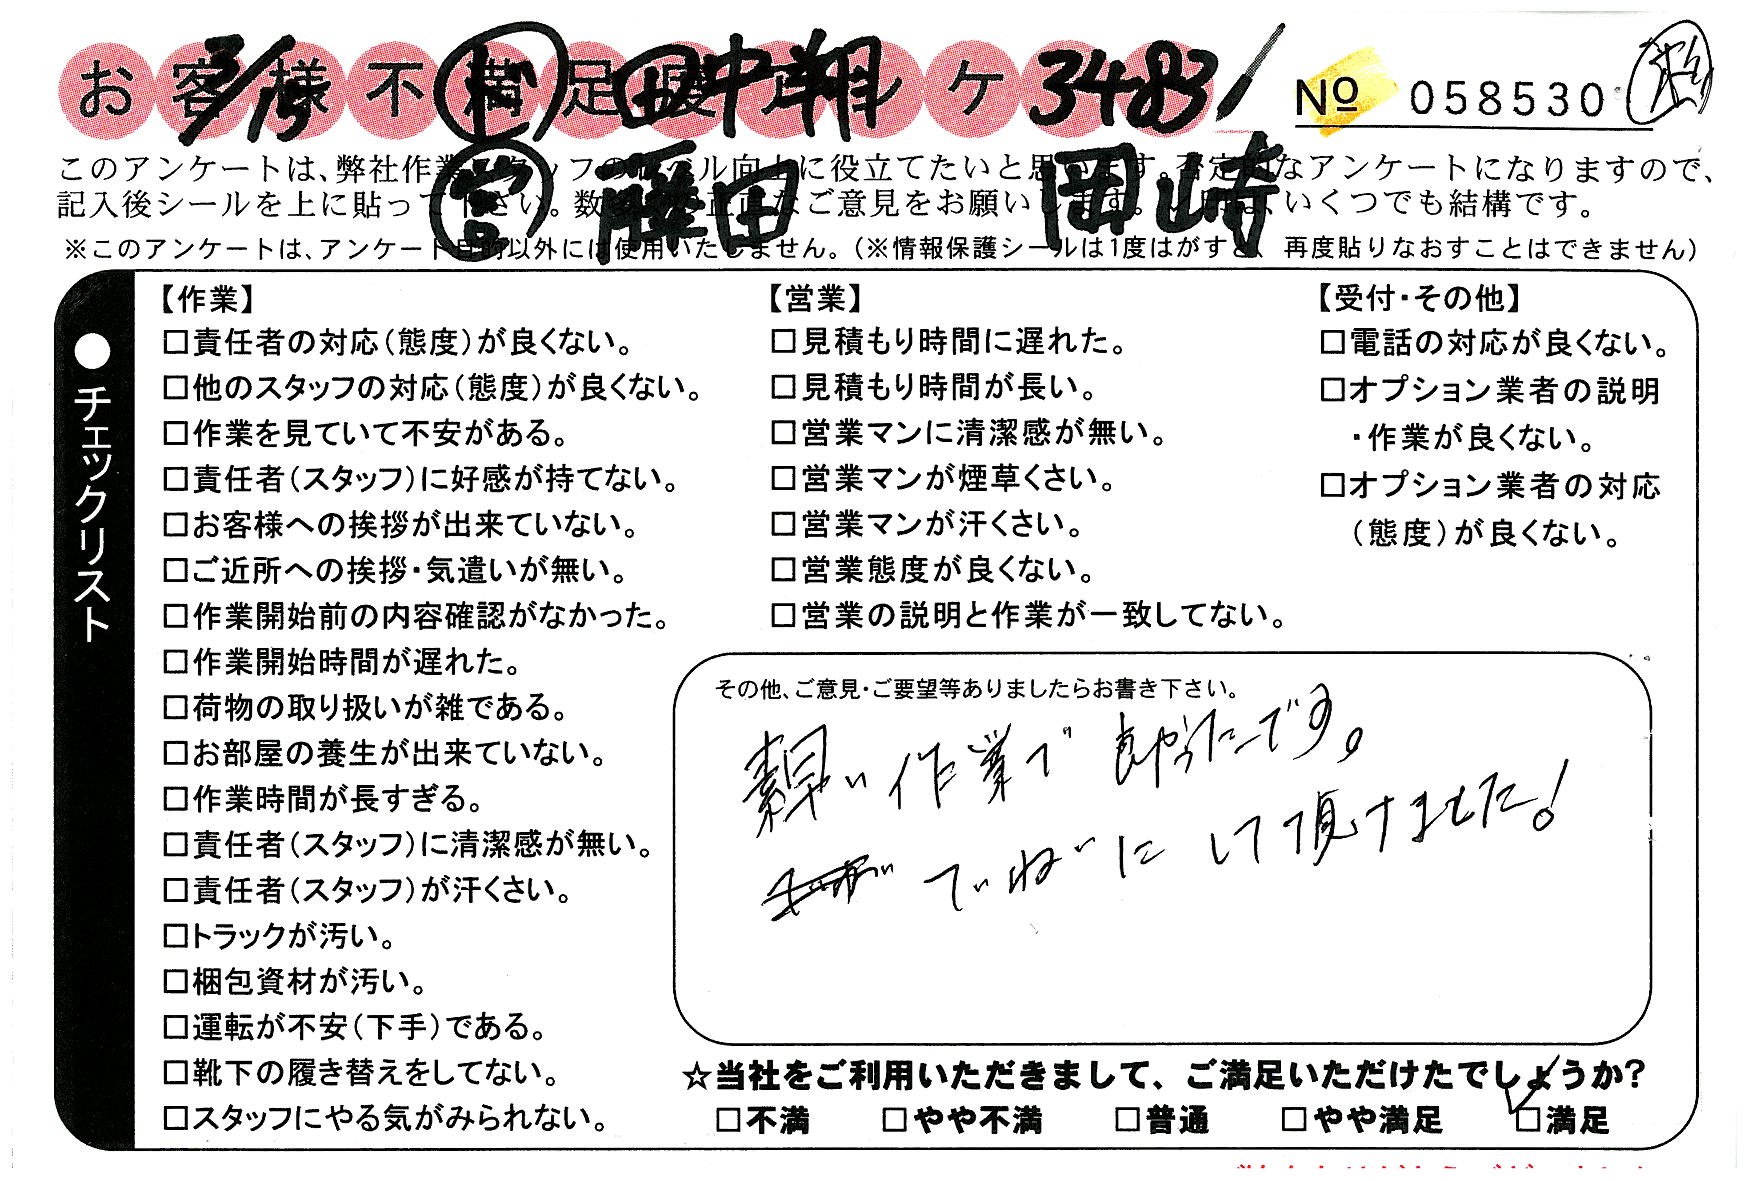 お客様不満足度アンケ
3/15 田中翔 3483
№ 058530
このアンケートは、弊社作業スタッフのレベル向上に役立てたいと思います。否定的なアンケートになりますので、
営 藤田 岡崎
記入後シールを上に貼って下さい。数 正直なご意見をお願いします。 いくつでも結構です。
※このアンケートは、アンケート目的以外には使用いたしません。(※情報保護シールは1度はがすと、再度貼りなおすことはできません)
●チェックリスト
【作業】
□責任者の対応(態度)が良くない。
□他のスタッフの対応(態度)が良くない。
□作業を見ていて不安がある。
□責任者(スタッフ)に好感が持てない。
□お客様への挨拶が出来ていない。
□ご近所への挨拶・気遣いが無い。
□作業開始前の内容確認がなかった。
□作業開始時間が遅れた。
□荷物の取り扱いが雑である。
□お部屋の養生が出来ていない。
□作業時間が長すぎる。
□責任者(スタッフ)に清潔感が無い。
□責任者(スタッフ)が汗くさい。
□トラックが汚い。
□梱包資材が汚い。
□運転が不安(下手)である。
□靴下の履き替えをしてない。
□スタッフにやる気がみられない。
【営業】
□見積もり時間に遅れた。
□見積もり時間が長い。
□営業マンに清潔感が無い。
□営業マンが煙草くさい。
□営業マンが汗くさい。
□営業態度が良くない。
□営業の説明と作業が一致してない。
【受付・その他】
□電話の対応が良くない。
□オプション業者の説明
・作業が良くない。
□オプション業者の対応
(態度)が良くない。
その他、ご意見・ご要望等ありましたらお書き下さい。
素早い作業で良かったです。
ていねいにして頂けました!
☆当社をご利用いただきまして、ご満足いただけたでしょうか?
□不満 □やや不満 □普通 □やや満足 □満足